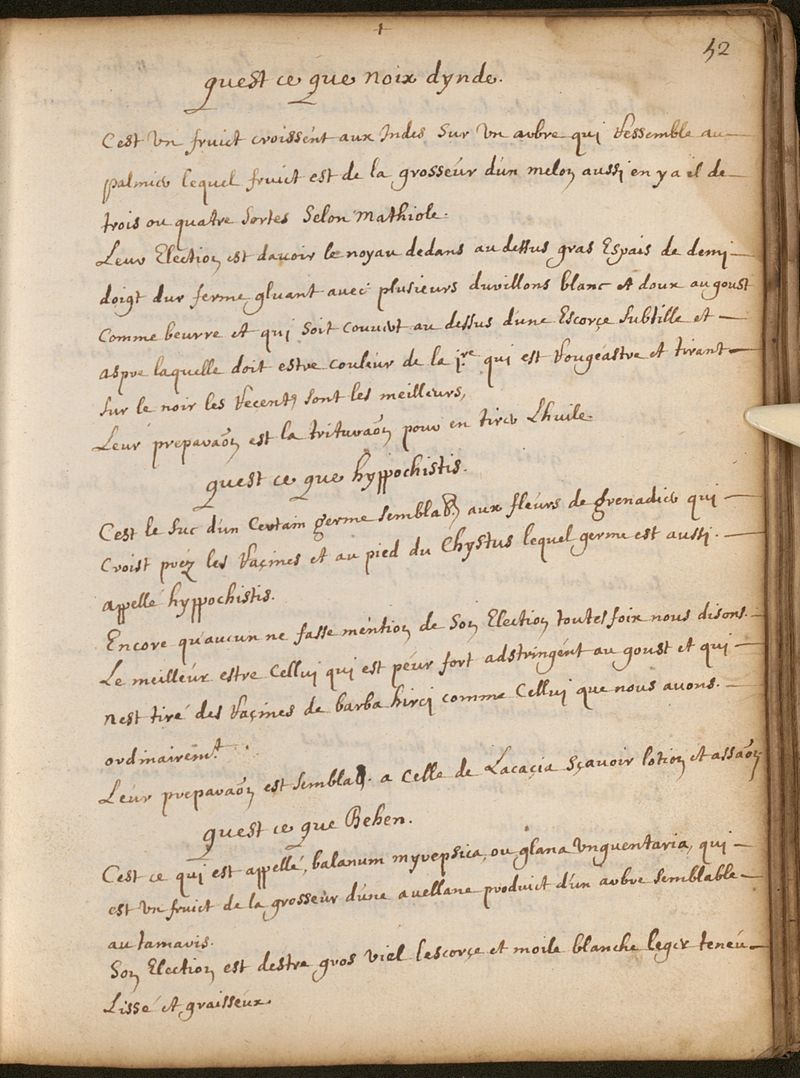 52
quest ce que noix dynde.
Cest Un fruict croissént aux Indes Sur Un arbre qui Ressemble au
palmier lequel fruict est de la grosseúr dún melon aussi en y a il de
trois ou quatre Sortes Selon Mathiole.
Leur Election est davoir le noyau dedans au dessus gras Espais de demi
doigt dur ferme gluant avec plusieurs durillons blanc et doux au goust
Comme beurre et qui Soit couvert au dessus dune Escorçe Subtille et
aspre laquelle doit estre couleur de la p.re qui est Rougéastre et tirant
Sur le noir les Recents sont les meilleurs,
Leúr préparaõn est la trituraõn pour en tirer Lhuile.
quest ce que hyppochistis.
Cest le Suc dún Certain germe semblab. aux fleúrs de grenadier qui
Croist préz les Raçines et au pied du Chystus lequel germe est aussi.
appellé hyppochistis.
Encore quaucun ne fasse méntion de Son Election toutesfoix nous disons.
Le meilleúr estre Cellui qui est péur fort adstringént au goust et qui
nest tiré des Raçines de barba hirci comme Cellui que nous avons.
ordinairém.t
Leúr preparaõn est semblab. a celle de Lacaçia Sçavoir lotion et assaõn
quest ce que Behen.
Cest ce qui est appellé, balanum myrepsica, ou glana Unguentaria, qui
est Un fruict de la grosseur dúne avellane produict dún arbre semblable
au tamaris.
Son Election est destre gros viel lescorçe et moile blanche leger tenéu
Lissé et graisseúx.